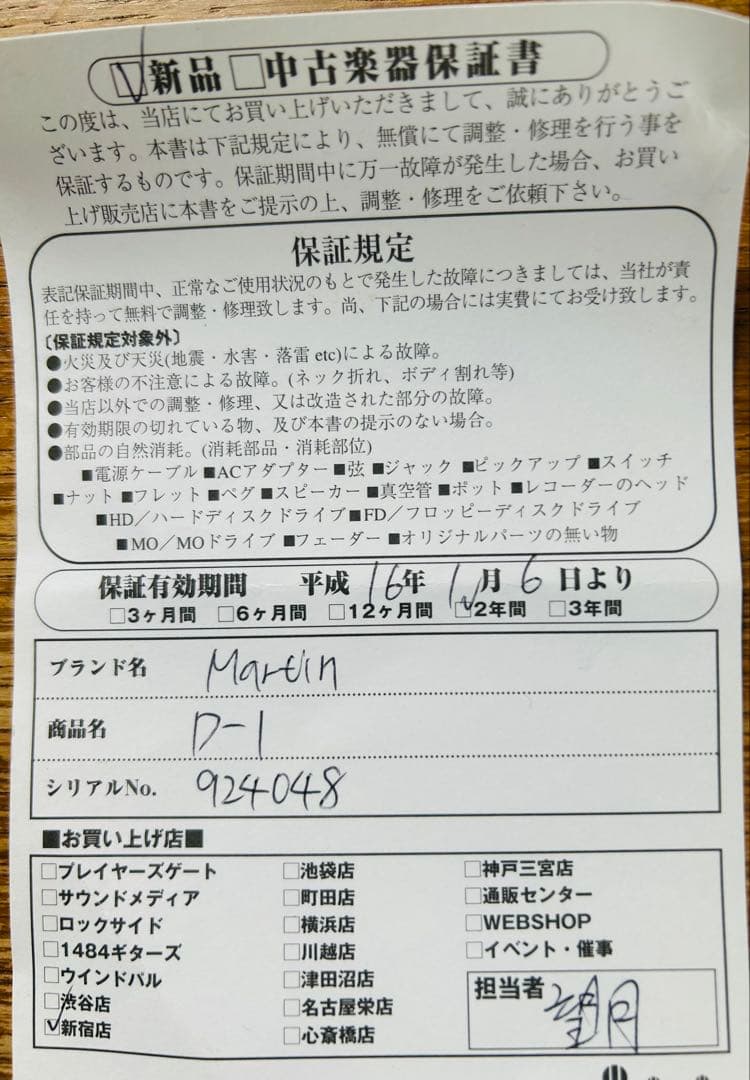 ☑新品□中古楽器保証書
この度は、当店にてお買い上げいただきまして、誠にありがとうご
ざいます。本書は下記規定により、無償にて調整・修理を行う事を
保証するものです。保証期間中に万一故障が発生した場合、お買い
上げ販売店に本書をご提示の上、調整・修理をご依頼下さい。
保証規定
表記保証期間中、正常なご使用状況のもとで発生した故障につきましては、当社が責
任を持って無料で調整・修理致します。尚、下記の場合には実費にてお受け致します。
〔保証規定対象外〕
●火災及び天災(地震・水害・落雷 etc)による故障。
●お客様の不注意による故障。(ネック折れ、ボディ割れ等)
●当店以外での調整・修理、又は改造された部分の故障。
●有効期限の切れている物、及び本書の提示のない場合。
●部品の自然消耗。(消耗部品・消耗部位)
■電源ケーブル ■ACアダプター ■弦 ■ジャック ■ピックアップ ■スイッチ
■ナット ■フレット ■ペグ ■スピーカー ■真空管 ■ポット ■レコーダーのヘッド
■HD／ハードディスクドライブ ■FD／フロッピーディスクドライブ
■MO／MOドライブ ■フェーダー ■オリジナルパーツの無い物
保証有効期間 平成 16年 1月 6日より
□3ヶ月間 □6ヶ月間 □12ヶ月間 ☑2年間 □3年間
ブランド名 Martin
商品名 D-1
シリアルNo. 924048
■お買い上げ店■
□プレイヤーズゲート □池袋店 □神戸三宮店
□サウンドメディア □町田店 □通販センター
□ロックサイド □横浜店 □WEBSHOP
□1484ギターズ □川越店 □イベント・催事
□ウインドパル □津田沼店 担当者 望月
□渋谷店 □名古屋栄店
☑新宿店 □心斎橋店